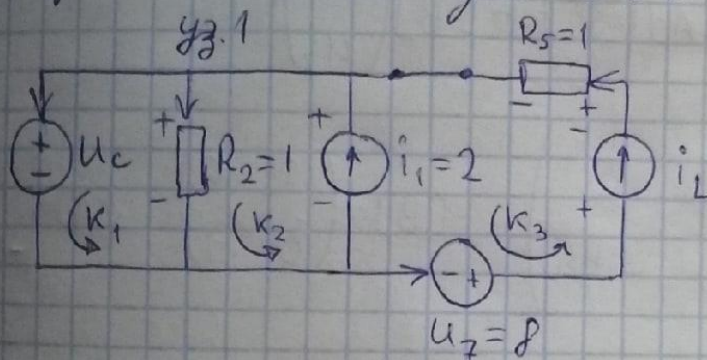 уз.1
R₅=1
+
-
Uc
+
-
R₂=1
+
-
i₁=2
-
+
-
+
iL
K₁
K₂
K₃
- +
U₇=8